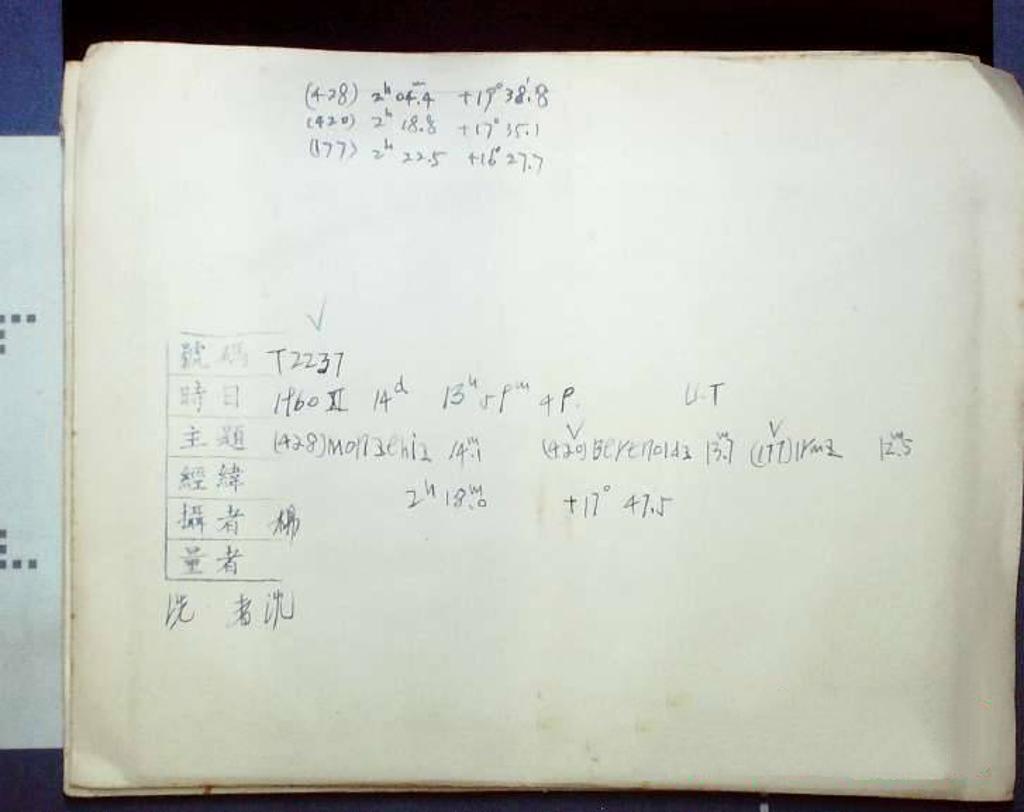 (428) 2h 04.4m +19° 38'.8
(420) 2h 18.8 +17° 35.1
(177) 2h 22.5 +16° 27.7
√
號碼 T2237
時日 1960 II 14d 13h 59m 49. U.T
主題 (428) Monachia 14m.1 (420) Bertholda 13m.7 (177) Irma 12m.5
經緯 2h 18m.0 +17° 47.5
攝者 楊
量者
洗者沈